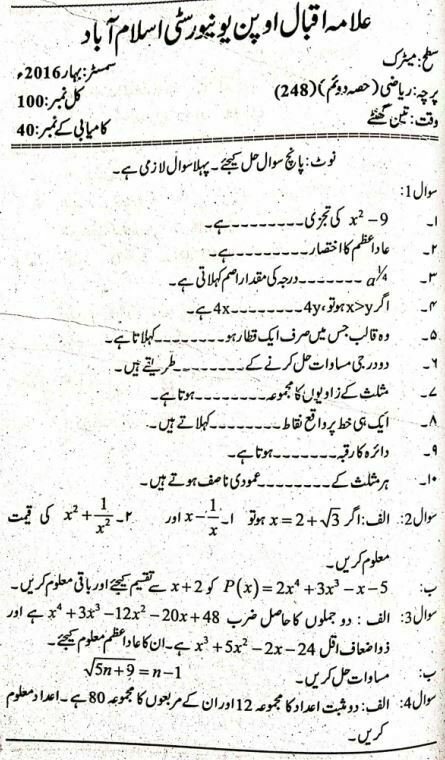 علامہ اقبال اوپن یونیورسٹی اسلام آباد
سطح: میٹرک
سمسٹر: بہار 2016ء
پرچہ: ریاضی (حصہ دوئم) (248)
کل نمبر: 100
وقت: تین گھنٹے
کامیابی کے نمبر: 40
نوٹ: پانچ سوال حل کیجئے۔ پہلا سوال لازمی ہے۔
سوال 1:
۱۔ x² − 9 کی تجزی --------- ہے۔
۲۔ عاداعظم کا اختصار --------- ہے۔
۳۔ a^¼ ------- درجہ کی مقدار اصم کہلاتی ہے۔
۴۔ اگر x>y ہو تو، 4y --------- 4x ہے۔
۵۔ وہ قالب جس میں صرف ایک قطار ہو -------- کہلاتا ہے۔
۶۔ دو درجی مساوات حل کرنے کے -------- طریقے ہیں۔
۷۔ مثلث کے زاویوں کا مجموعہ -------- ہوتا ہے۔
۸۔ ایک ہی خط پر واقع نقاط -------- کہلاتے ہیں۔
۹۔ دائرہ کا رقبہ -------- ہوتا ہے۔
۱۰۔ ہر مثلث کے -------- عمودی ناصف ہوتے ہیں۔
سوال 2: الف: اگر x = 2 + √3 ہو تو ۱۔ x − 1/x اور ۲۔ x² + 1/x² کی قیمت
معلوم کریں۔
ب: P(x) = 2x⁴ + 3x³ − x − 5 کو x + 2 سے تقسیم کیجئے اور باقی معلوم کریں۔
سوال 3: الف: دو جملوں کا حاصل ضرب x⁴ + 3x³ − 12x² − 20x + 48 ہے اور
ذواضعاف اقل x³ + 5x² − 2x − 24 ہے۔ ان کا عاداعظم معلوم کیجئے۔
ب: مساوات حل کریں۔ √(5n + 9) = n − 1
سوال 4: الف: دو مثبت اعداد کا مجموعہ 12 اور ان کے مربعوں کا مجموعہ 80 ہے۔ اعداد معلوم
کریں۔